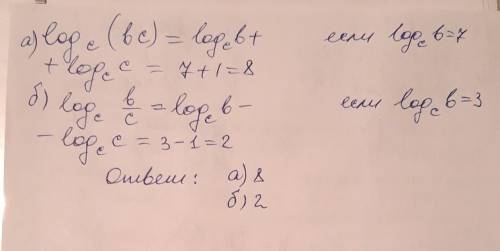 а) log_c (bc) = log_c b + если log_c b = 7
+ log_c c = 7 + 1 = 8
б) log_c b/c = log_c b - если log_c b = 3
- log_c c = 3 - 1 = 2
Ответ: а) 8
б) 2